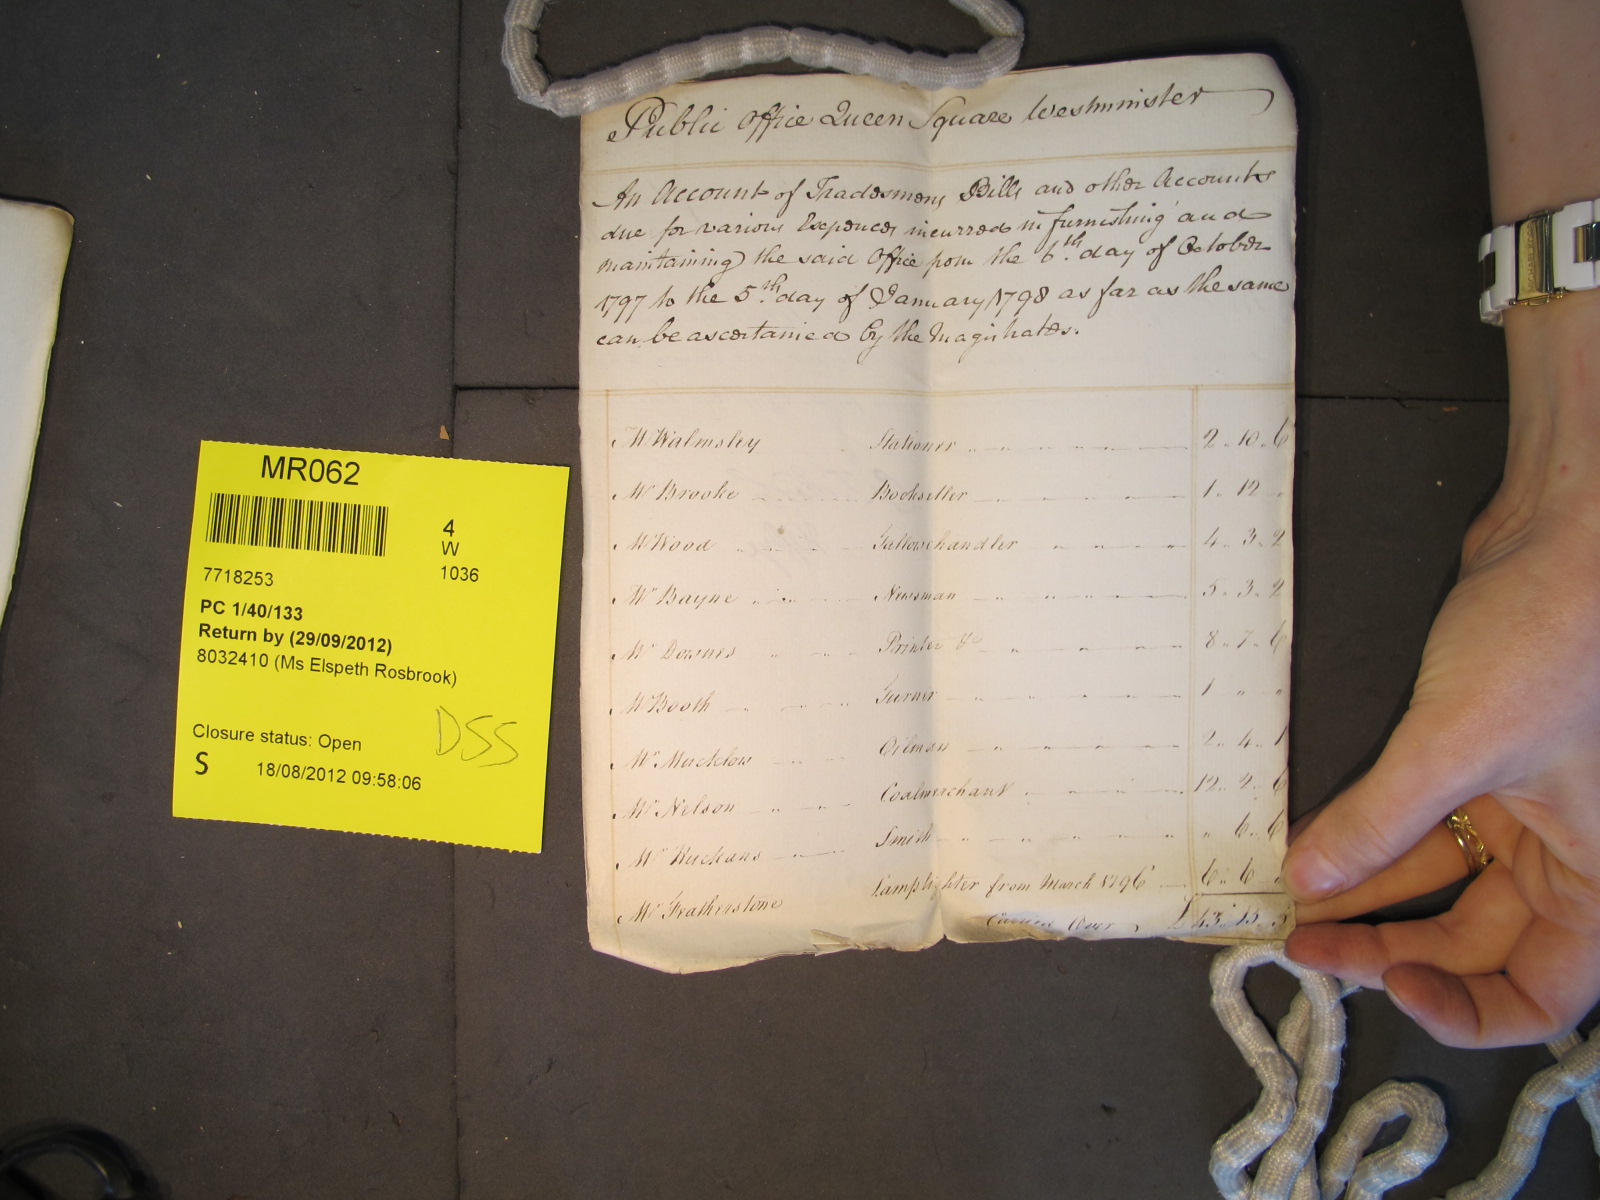 Public Office Queen Square Westminster
An Account of Tradesmens Bills and other Accounts
due for various Expences incurred in furnishing and
maintaining the said Office from the 6th. day of October
1797 to the 5th. day of January 1798 as far as the same
can be ascertained by the Magistrates.
Mr Walmsley Stationer 2 .. 10 .. 6
Mr Brooke Bookseller 1 .. 12 ..
Mr Wood Tallowchandler 4 .. 3 .. 2
Mr Bayne Newsman 5 .. 3 .. 2
Mr Downes Printer &c 8 .. 7 .. 6
Mr Booth Turner 1 " "
Mr Mucklow Oilman 2 .. 4 .. 1
Mr Nelson Coalmerchant 12 .. 2 .. 6
Mr Ruckans Smith " 6 .. 6
Mr Featherstone Lamplighter from March 1796 6 .. 6 ..
Carried Over £ 43 .. 15 .. 5
MR062
4
W
1036
7718253
PC 1/40/133
Return by (29/09/2012)
8032410 (Ms Elspeth Rosbrook)
DSS
Closure status: Open
S 18/08/2012 09:58:06